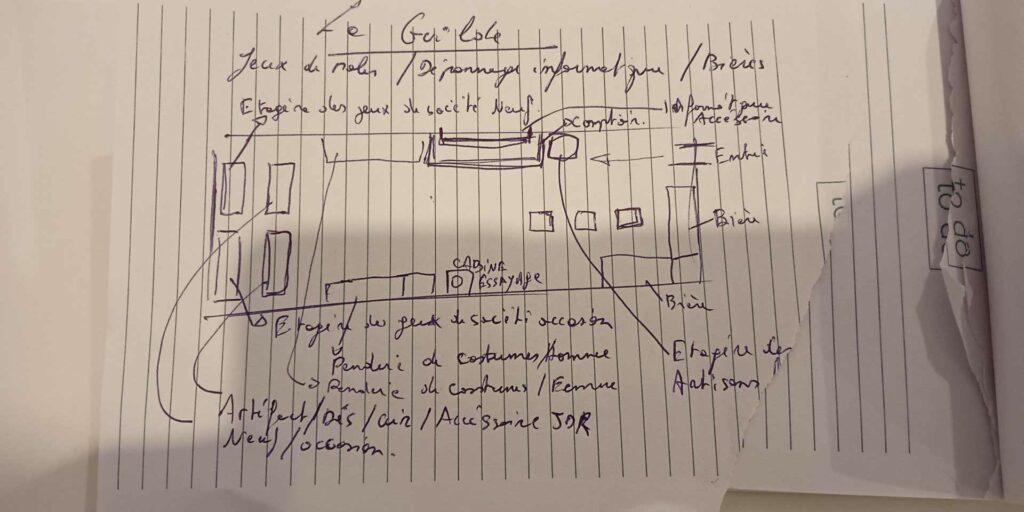 Le
Jeux de Roles / Dépannage informatique / Bières
Etagère des jeux de société Neuf
Informatique
Accessoire
comptoir.
Entrée
Bière
CABINE
ESSAYAGE
Bière
Etagère des jeux de société occasion
Penderie de costumes / Homme
Penderie de costumes / Femme
Etagère des
Artisans
Artéfact / Dés / Cuir / Accéssoire JDR
Neuf / occasion.
to do